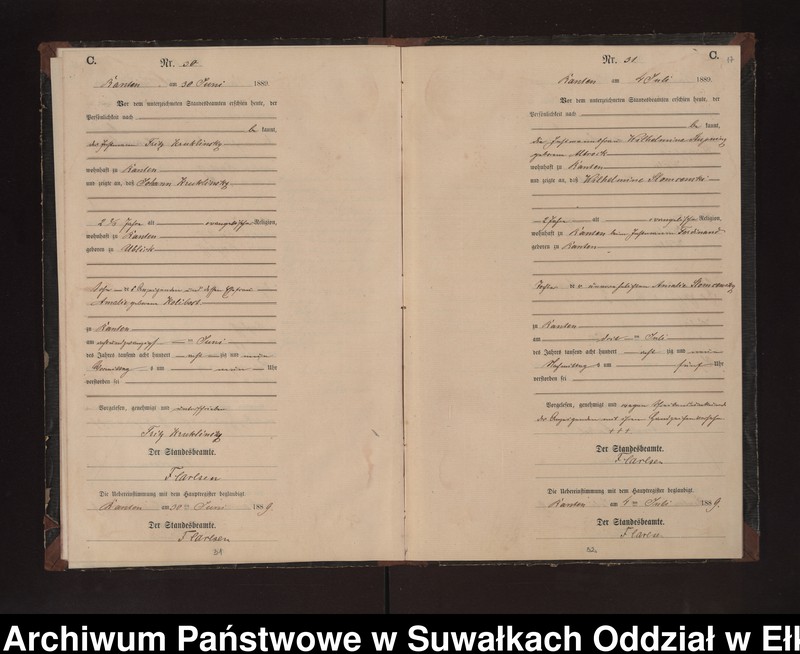 C.
Nr. 30.
Kanten am 30 Juni 1889.
Vor dem unterzeichneten Standesbeamten erschien heute, der
Persönlichkeit nach
be kannt,
der Fritz Kruklinsky
wohnhaft zu Kanten
und zeigte an, daß Johann Krukli&nsky
2 Jahre alt evangelischer Religion,
wohnhaft zu Kanten
geboren zu Ublick
Sohn des Anzeigenden und dessen Ehefrau
Amalie geborene
zu Kanten
am ten Juni
des Jahres tausend acht hundert acht zig und neun
Vormittag s um neun Uhr
verstorben sei
Vorgelesen, genehmigt und unterschrieben
Fritz Kruklinsky
Der Standesbeamte.
F Carlsen
Die Uebereinstimmung mit dem Hauptregister beglaubigt
Kanten am 30ten Juni 1889.
Der Standesbeamte.
F Carlsen
31
C.
17
Nr. 31.
Kanten am 4 Juli 1889.
Vor dem unterzeichneten Standesbeamten erschien heute, der
Persönlichkeit nach
be kannt,
die Wilhelmine
geborene
wohnhaft zu Kanten
und zeigte an, daß Wilhelmine
2 Jahre alt evangelischer Religion,
wohnhaft zu Kanten beim Ferdinand
geboren zu Kanten
Tochter der unverehelichten Amalie
zu Kanten
am drei ten Juli
des Jahres tausend acht hundert acht zig und neun
Nachmittag s um fünf Uhr
verstorben sei
Vorgelesen, genehmigt und wegen
der Anzeigenden mit ihrem Handzeichen versehen
+++
Der Standesbeamte.
F Carlsen
Die Uebereinstimmung mit dem Hauptregister beglaubigt
Kanten am 4ten Juli 1889.
Der Standesbeamte.
F Carlsen
32
Archiwum Państwowe w Suwałkach Oddział w Ełk